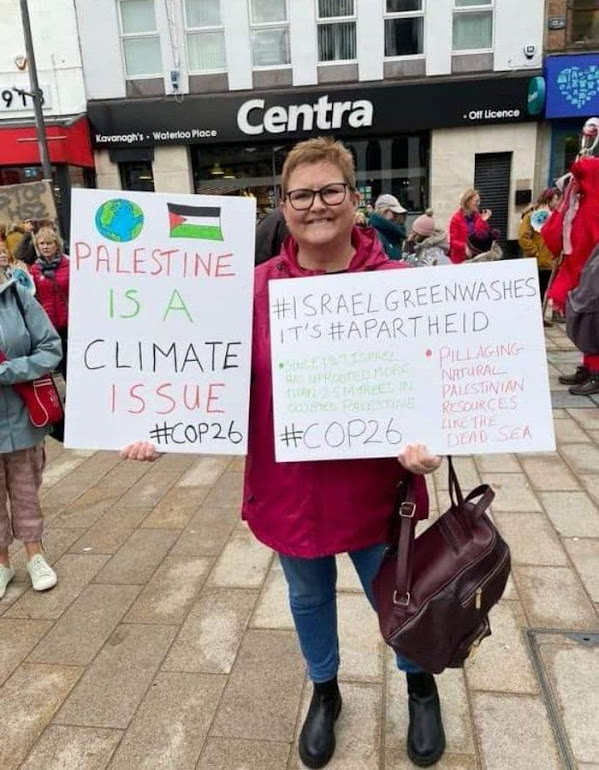 Centra
Kavanagh's · Waterloo Place
· Off Licence
STOP
PALESTINE
IS A
CLIMATE
ISSUE
#COP26
#ISRAEL GREENWASHES
IT'S #APARTHEID
• SINCE 1967 ISRAEL
HAS UPROOTED MORE
THAN 2.5M TREES IN
OCCUPIED PALESTINE
#COP26
• PILLAGING
NATURAL
PALESTINIAN
RESOURCES
LIKE THE
DEAD SEA